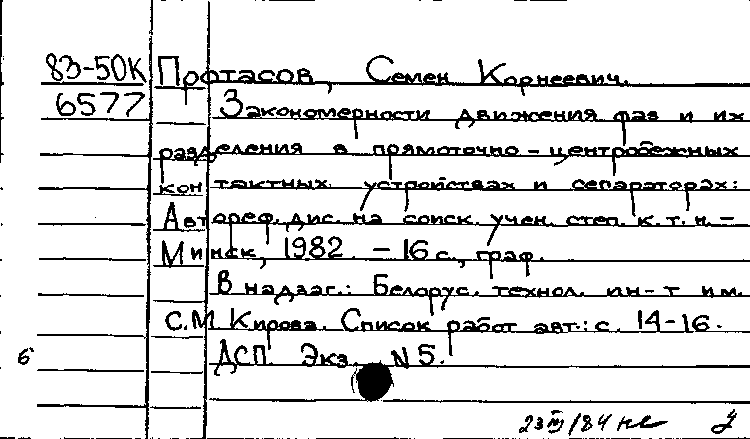 83-50К Протасов, Семен Корнеевич.
6577 Закономерности движения фаз и их
разделения в прямоточно-центробежных
контактных устройствах и сепараторах:
Автореф. дис. на соиск. учен. степ. к.т.н. -
Минск, 1982. - 16 с., граф.
В надзаг.: Белорус. технол. ин-т им.
С.М. Кирова. Список работ авт.: с. 14-16.
б ДСП. Экз. N 5.
23 III/84